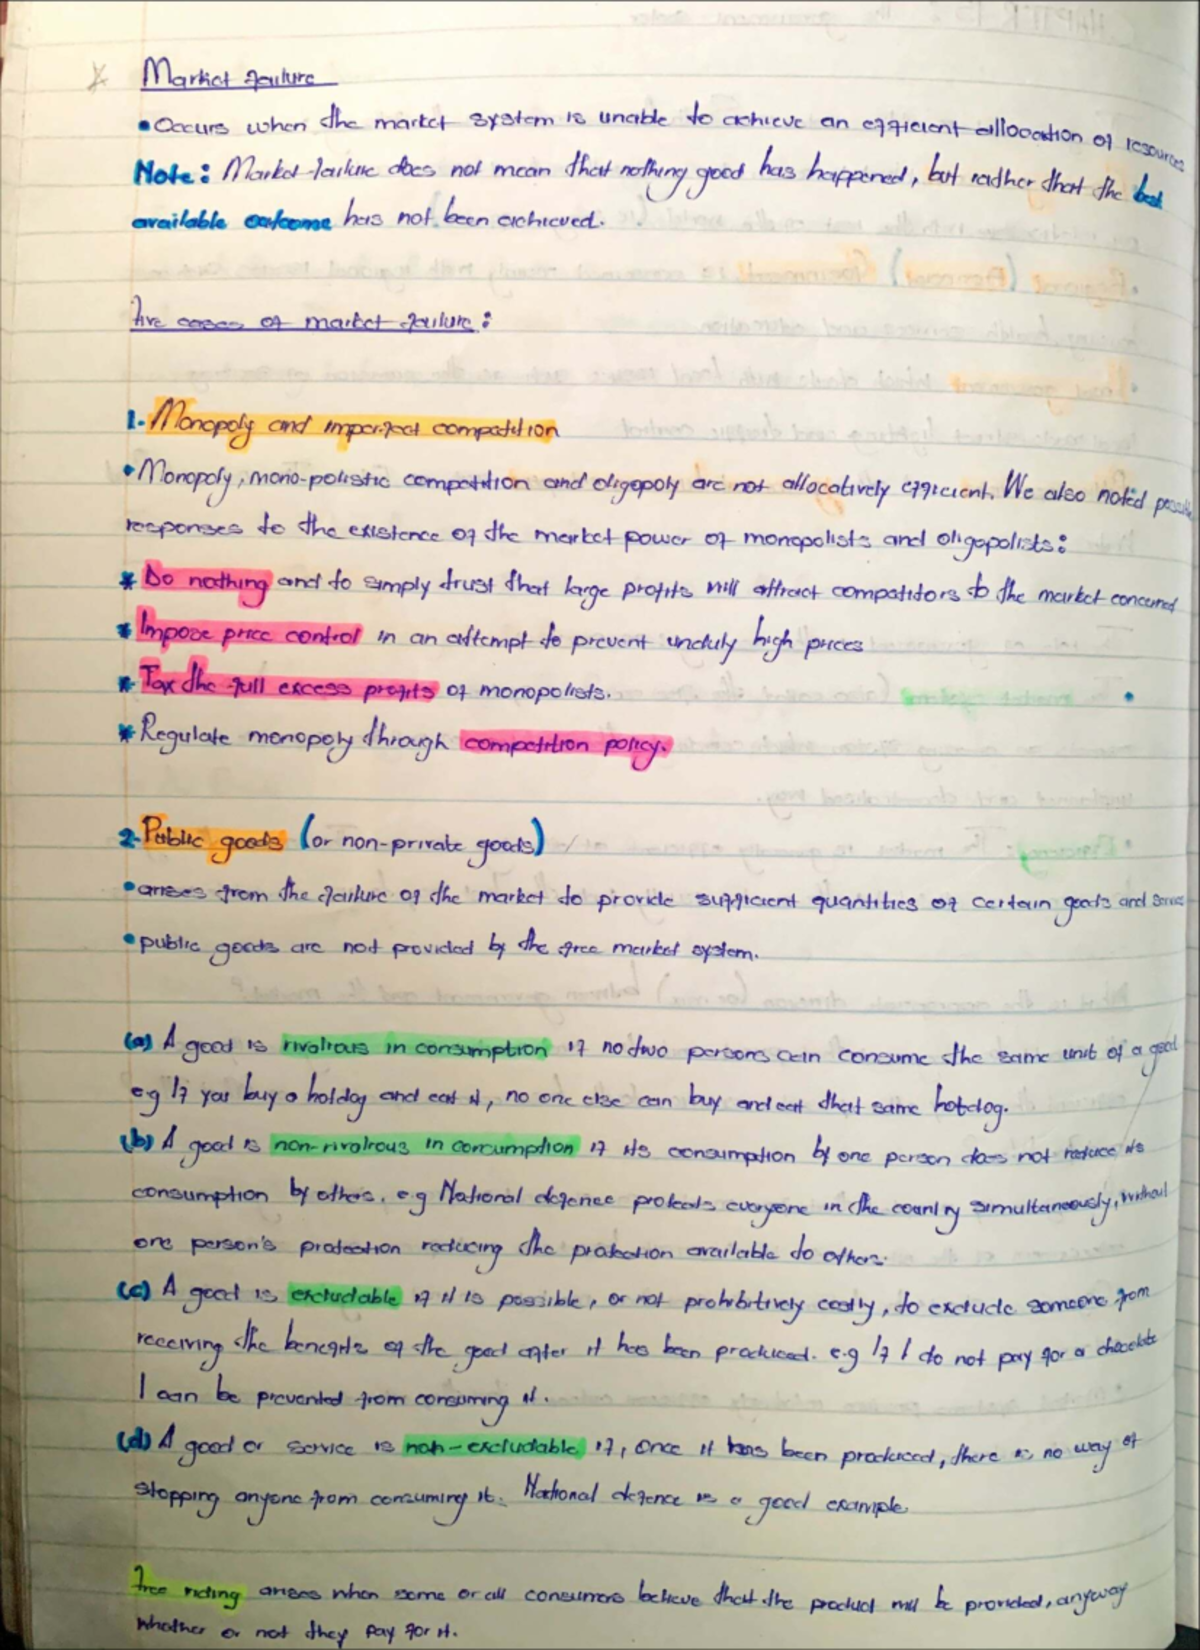 Market failure
• Occurs when the market system is unable to achieve an efficient allocation of resources
Note: Market failure does not mean that nothing good has happened, but rather that the best
available outcome has not been achieved.
Five cases of market failure:
1. Monopoly and imperfect competition
• Monopoly, mono-polistic competition and oligopoly are not allocatively efficient. We also noted possible
responses to the existence of the market power of monopolists and oligopolists:
* Do nothing and to simply trust that large profits will attract competitors to the market concerned
* Impose price control in an attempt to prevent unduly high prices
* Tax the full excess profits of monopolists.
* Regulate monopoly through competition policy.
2. Public goods (or non-private goods)
• arises from the failure of the market to provide sufficient quantities of certain goods and services
• public goods are not provided by the free market system.
(a) A good is rivalrous in consumption if no two persons can consume the same unit of a good
eg If you buy a hotdog and eat it, no one else can buy and eat that same hotdog.
(b) A good is non-rivalrous in consumption if its consumption by one person does not reduce its
consumption by others. e.g National defence protects everyone in the country simultaneously, without
one person's protection reducing the protection available to others.
(c) A good is excludable if it is possible, or not prohibitively costly, to exclude someone from
receiving the benefits of the good after it has been produced. e.g If I do not pay for a chocolate
I can be prevented from consuming it.
(d) A good or service is non-excludable if, once it has been produced, there is no way of
stopping anyone from consuming it. National defence is a good example.
Free riding arises when some or all consumers believe that the product will be provided, anyway
whether or not they pay for it.